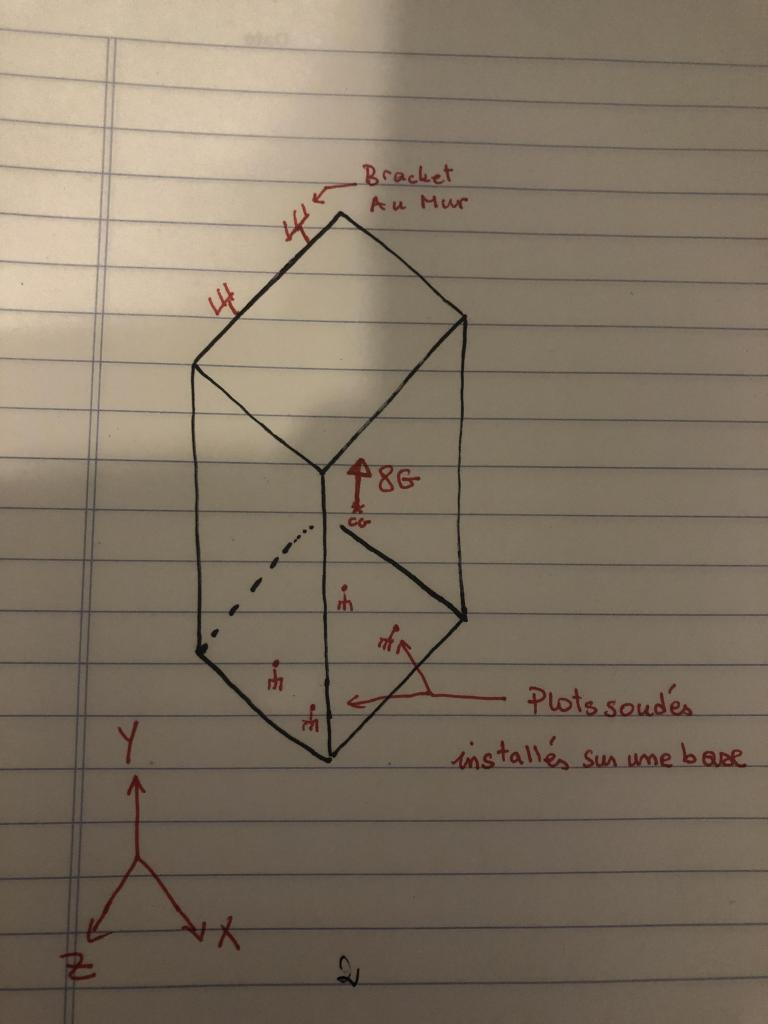 Bracket
Au Mur
8G
CG
Plots soudés
installés sur une base
Y
X
Z
2